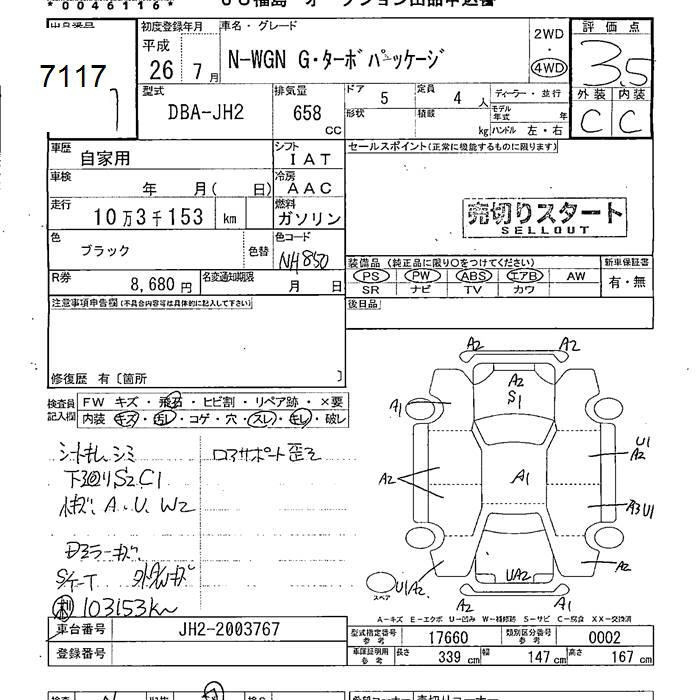 *0046116*
7117
初度登録年月
車名・グレード
平成
26年 7月
N-WGN G・ターボパッケージ
2WD
・
4WD
評価点
3.5
外装 内装
C C
型式
DBA-JH2
排気量
658
cc
ドア
5
定員
4人
形状
積載
kg
ディーラー・並行
モデル年式 年
ハンドル 左・右
車歴
自家用
シフト
IAT
車検
年 月( 日)
冷房
AAC
走行
10万3千153 km
燃料
ガソリン
色
ブラック
色替
色コード
NH850
R券
8,680円
名変通知期限
月 日
セールスポイント(正常に機能するものに限ります)
売切りスタート
SELLOUT
装備品(純正品に限り○をつけてください)
新車保証書
PS PW ABS エアB AW
有・無
SR ナビ TV カワ
後日品
注意事項申告欄(不具合内容等は具体的に記入して下さい)
修復歴 有〔箇所 〕
検査員記入欄
FW キズ・飛石・ヒビ割・リペア跡・×要
内装 キズ・汚レ・コゲ・穴・スレ・キレ・破レ
シートキレ シミ
ロアサポート歪ミ
下回りS2C1
A.U.W2
ドアミラーキズ
103153km
A2 A2
A2
S1
A1
U1
A2
A2
A1
A3U1
A2
U1A2
UA2
A2 A1
スペア
A-キズ E-エクボ U-凹み W-補修跡 S-サビ C-腐食 XX-交換済
車台番号
JH2-2003767
登録番号
型式指定番号
参考
17660
類別区分番号
参考
0002
車庫証明用
参考
長さ 339cm 幅 147cm 高さ 167cm